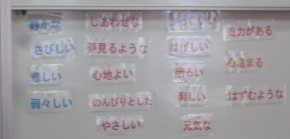 静かな
さびしい
悲しい
弱々しい
しあわせな
夢見るような
心地よい
のんびりとした
やさしい
はげしい
勇ましい
楽しい
元気な
迫力がある
心温まる
はずむような